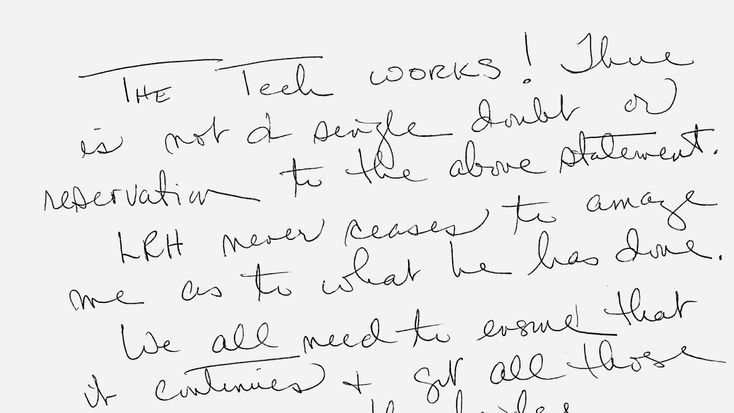 THE Tech WORKS! There
is not a single doubt or
reservation to the above statement.
LRH never ceases to amaze
me as to what he has done.
We all need to ensure that
it continues + get all those